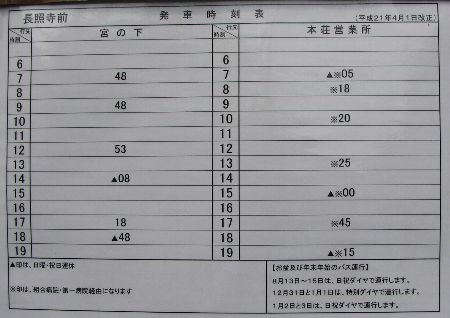 長照寺前 発車時刻表 (平成21年4月1日改正)
行先 時刻 宮の下 行先 時刻 本荘営業所
6 6
7 48 7 ▲※05
8 8 ※18
9 48 9
10 10 ※20
11 11
12 53 12
13 13 ※25
14 ▲08 14
15 15 ▲※00
16 16
17 18 17 ※45
18 ▲48 18
19 19 ▲※15
▲印は、日曜・祝日運休
※印は、組合病院・第一病院経由になります
【お盆及び年末年始のバス運行】
8月13日~15日は、日祝ダイヤで運行します。
12月31日と1月1日は、特別ダイヤで運行します。
1月2日と3日は、日祝ダイヤで運行します。